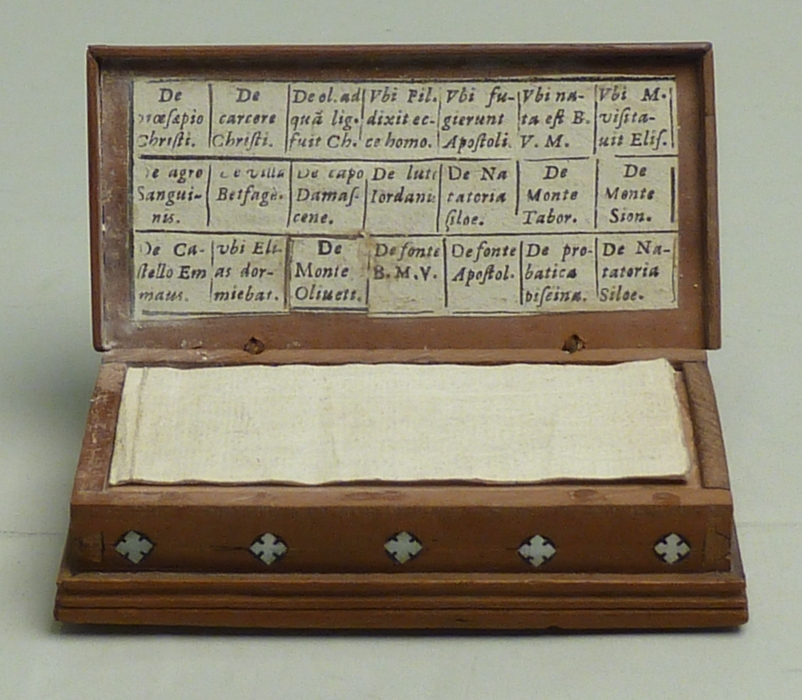 De
præsæpio
Christi.
De
carcere
Christi.
De ol. ad
quã lig.
fuit Ch.
Vbi Pil.
dixit ec-
ce homo.
Vbi fu-
gierunt
Apostoli
Vbi na-
ta est B.
V. M.
Vbi M.
visita-
uit Elis.
De agro
Sangui-
nis.
De villa
Betfagè.
De capo
Damas-
cene.
De
Iordanis
De Na
tatoria
siloe.
De
Monte
Tabor.
De
Monte
Sion.
De Ca-
stello Em
maus.
vbi Eli-
as dor-
miebat.
De
Monte
Oliueti.
De fonte
B. M. V.
De fonte
Apostol.
De pro-
batica
piscina.
De Na-
tatoria
Siloe.